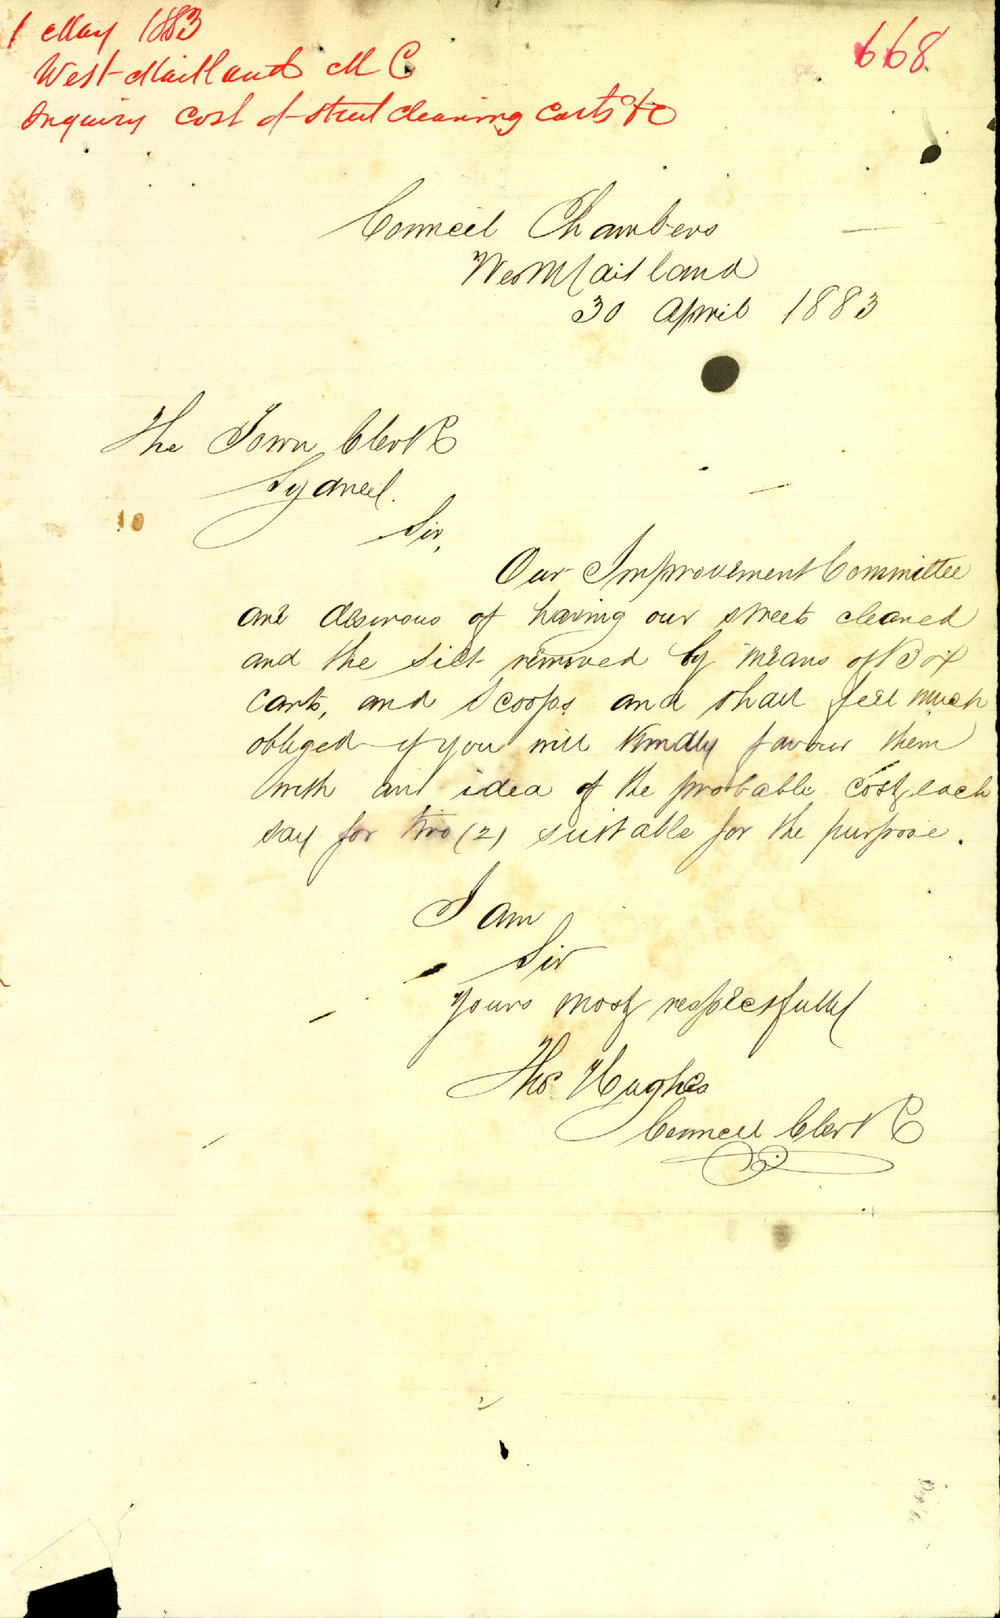 1 May 1883
West Maitland M C
Inquiry cost of street cleaning carts &c
668
Council Chambers
West Maitland
30 April 1883
The Town Clerk
Sydney.
Sir,
Our Improvement Committee
are desirous of having our streets cleaned
and the silt removed by means of Box
carts, and Scoops and shall feel much
obliged if you will kindly favour them
with an idea of the probable cost, each
say for two (2) suitable for the purpose.
I am
Sir
Yours most respectfully
Thos Hughes
Council Clerk